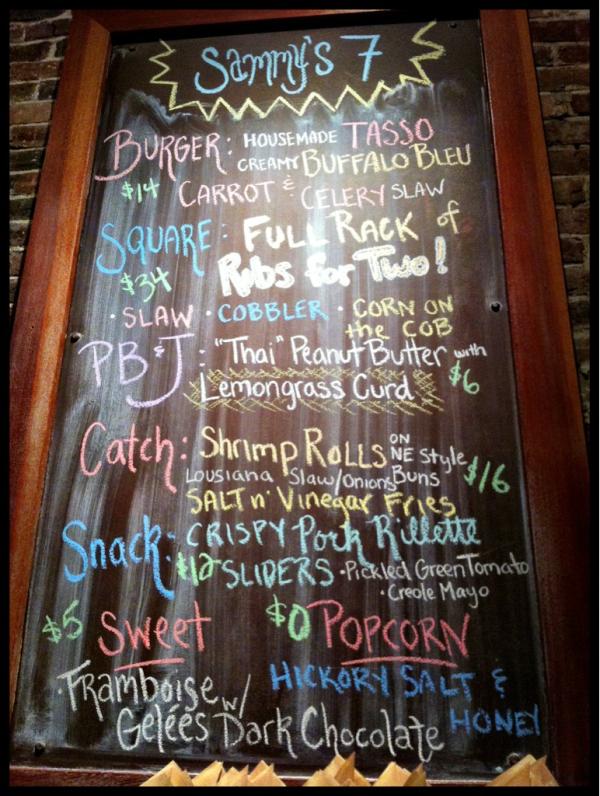 Sammy's 7
BURGER: HOUSEMADE TASSO
CREAMY BUFFALO BLEU
$14 CARROT & CELERY SLAW
SQUARE: FULL RACK of
$34 Ribs for Two!
· SLAW · COBBLER · CORN ON
the COB
PB&J: "Thai" Peanut Butter with
Lemongrass Curd $6
Catch: Shrimp ROLLS ON NE Style Buns
Lousiana Slaw/Onions $16
SALT n' Vinegar Fries
Snack: CRISPY Pork Rillette
$12 SLIDERS · Pickled Green Tomato
· Creole Mayo
$5 Sweet $0 POPCORN
· Framboise w/ HICKORY SALT &
Gelées Dark Chocolate HONEY